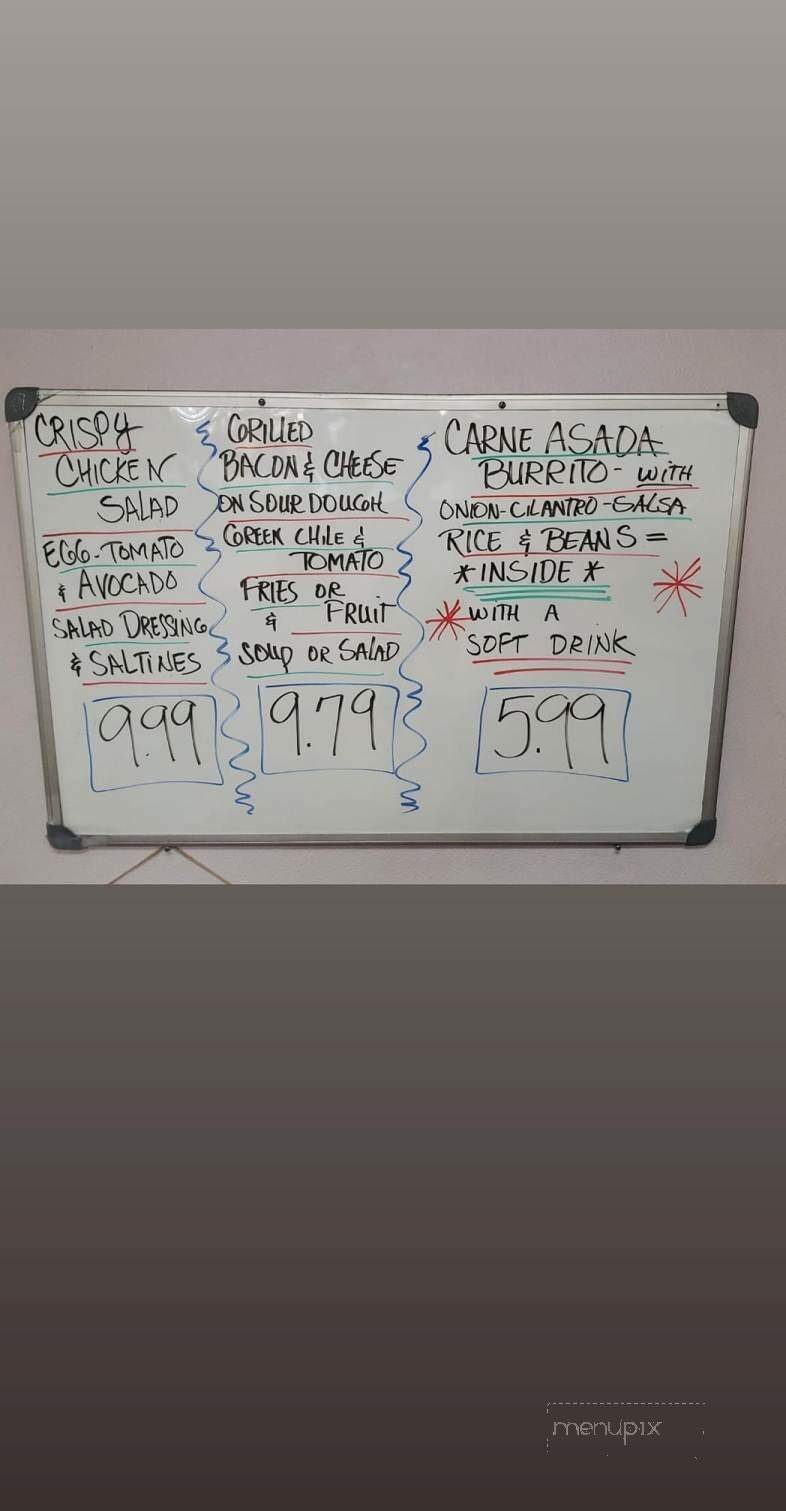 CRISPY
CHICKEN
SALAD
EGG-TOMATO
& AVOCADO
SALAD DRESSING
& SALTINES
9.99
GRILLED
BACON & CHEESE
ON SOURDOUGH
GREEN CHILE &
TOMATO
FRIES OR
& FRUIT
SOUP OR SALAD
9.79
CARNE ASADA
BURRITO- WITH
ONION-CILANTRO-SALSA
RICE & BEANS =
*INSIDE*
WITH A
SOFT DRINK
5.99
menupix